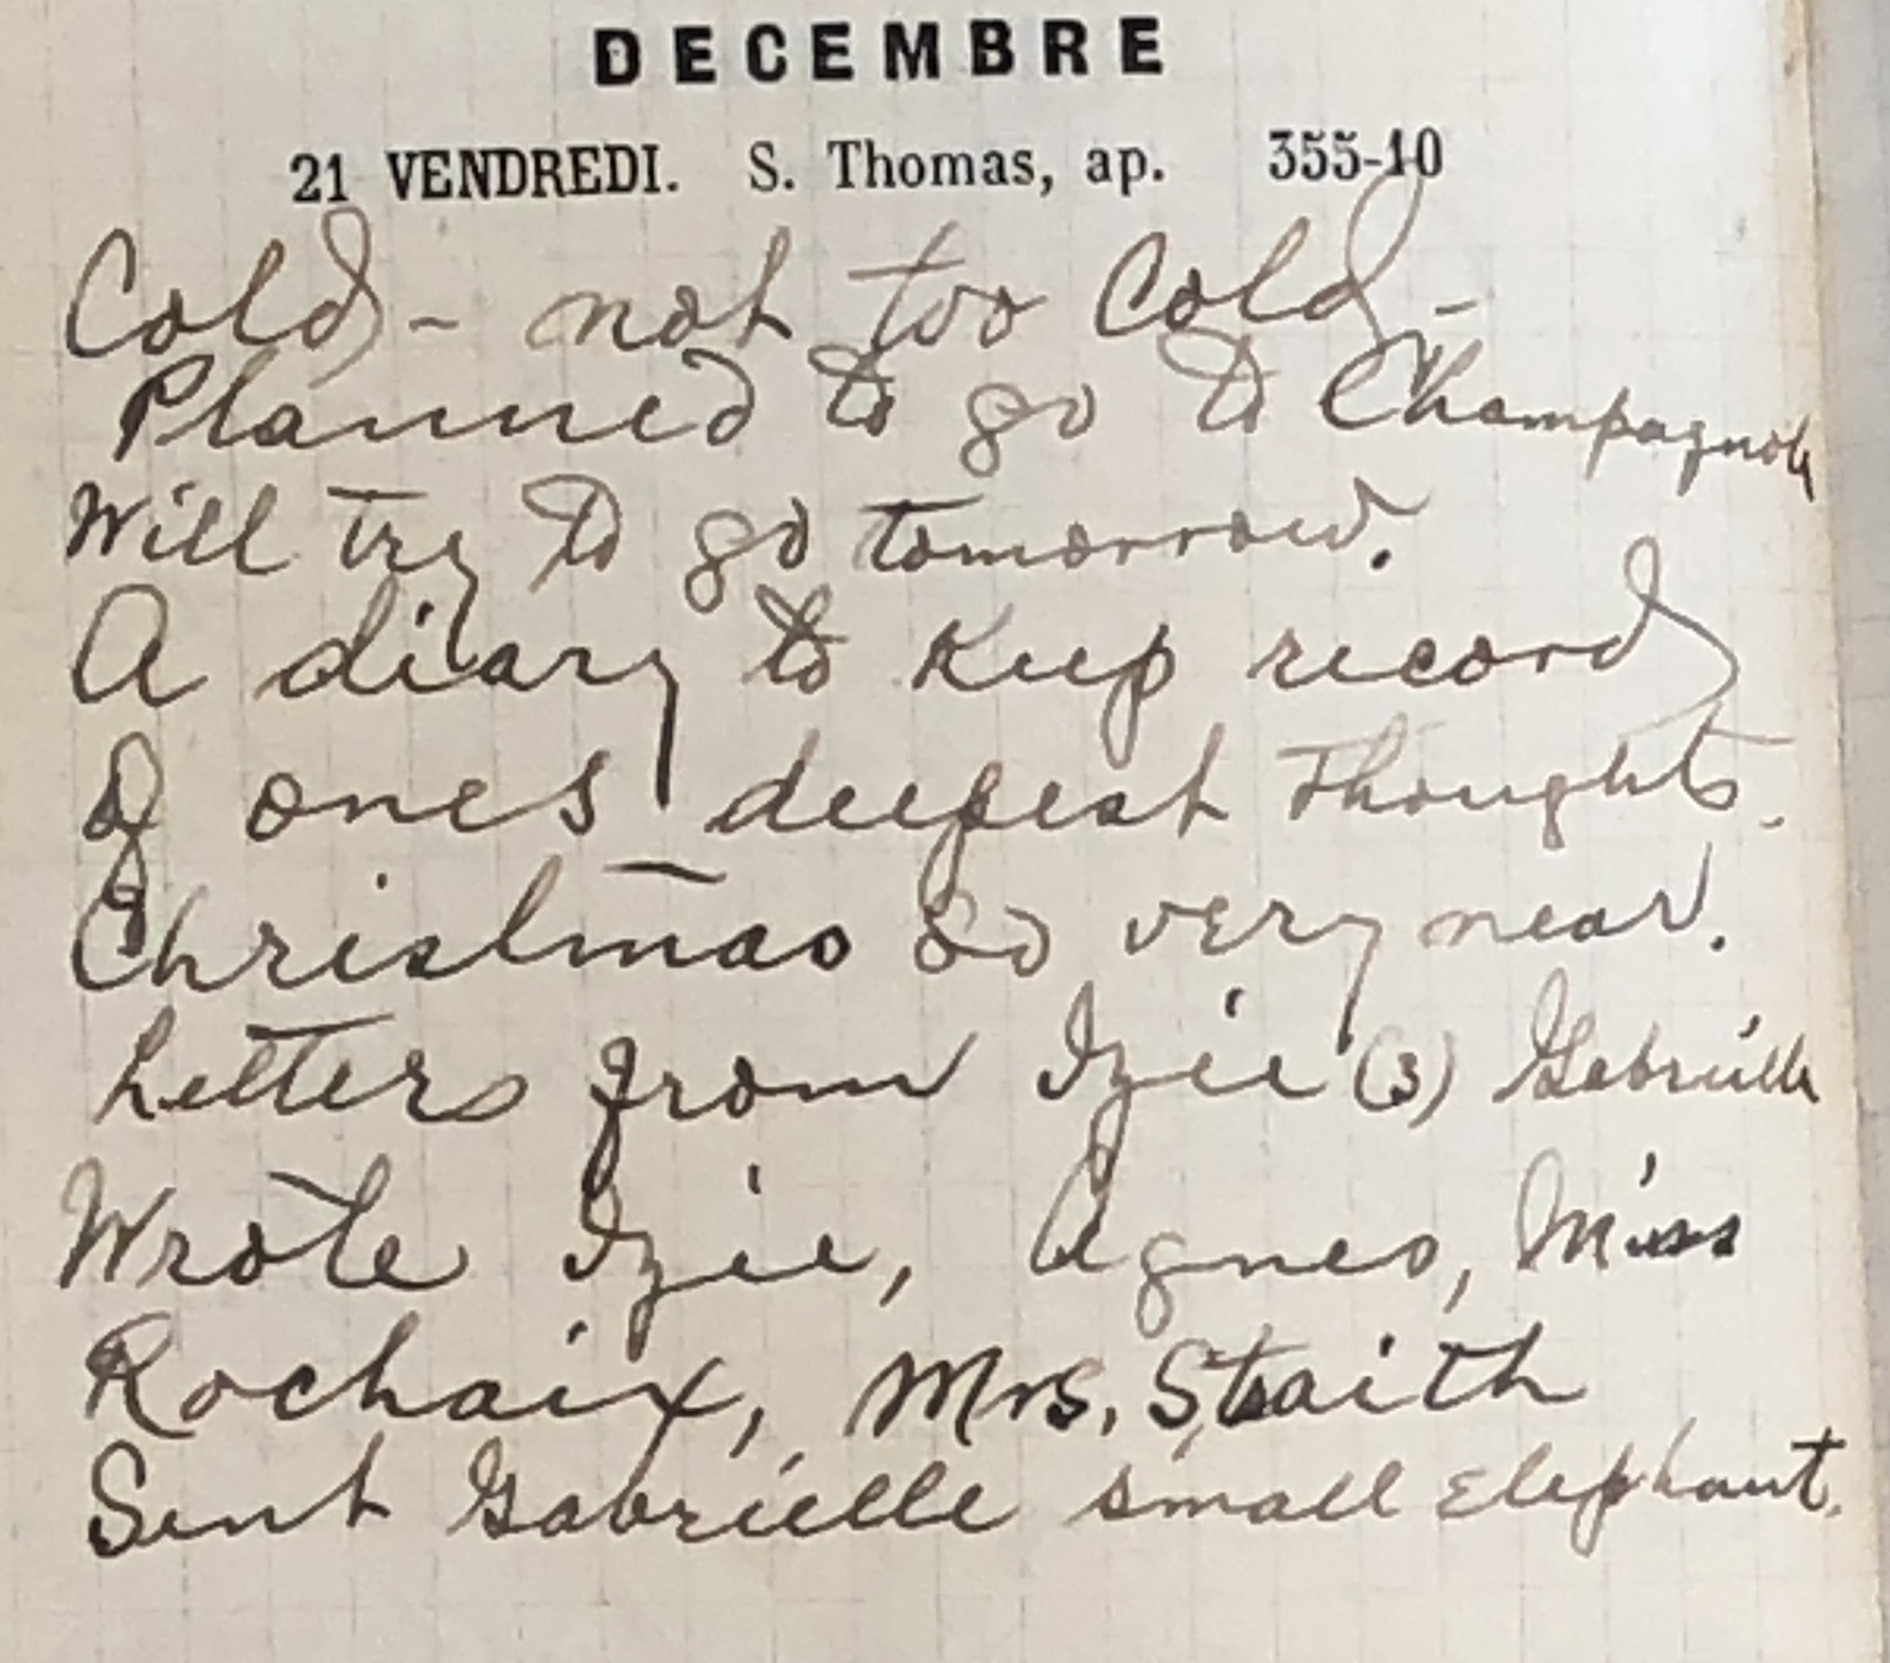 DECEMBRE
21 VENDREDI. S. Thomas, ap. 355-10
Cold - not too Cold -
Planned to go to Champagnole
Will try to go tomorrow.
A diary to keep record
of ones deepest thoughts.
Christmas so very near.
Letters from Izie (3) Gabrielle
Wrote Izie, Agnes, Miss
Rochaix, Mrs. Staith
Sent Gabrielle small Elephant.